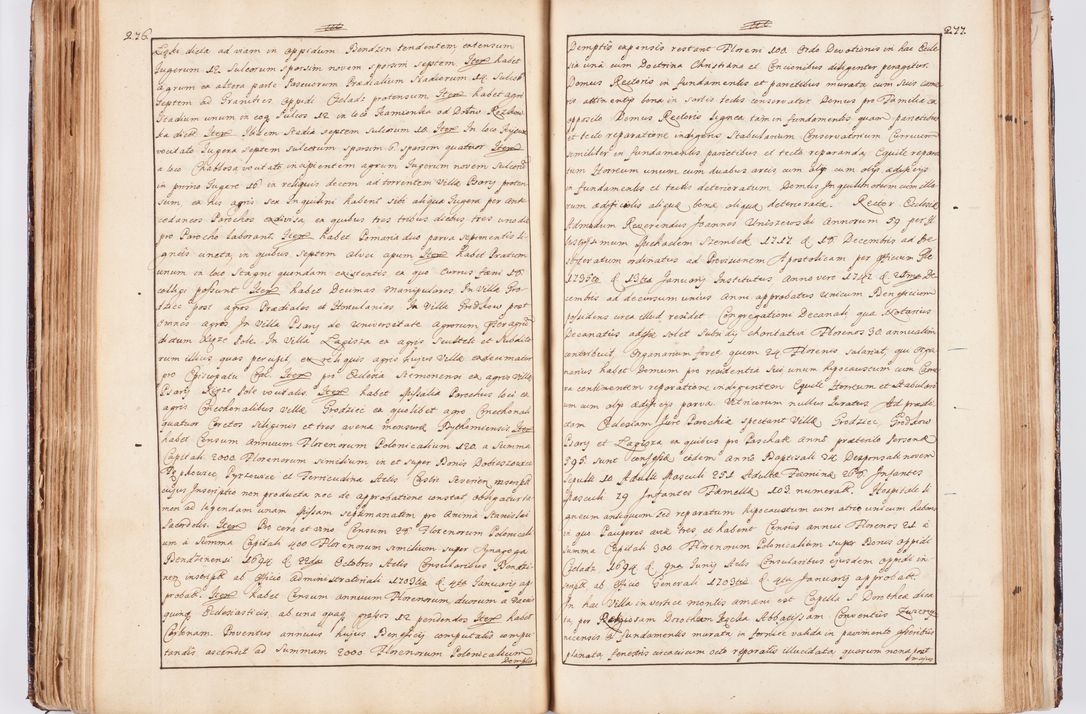 276.
Lyski dicta ad viam in oppidum Bendzin tendentem extensum
Jugerum 12. Sulcorum sparsim novem sparsim septem Item habet
agrum ex altera parte Pascuorum Prædialium Stadiorum 14. Sulcis
Septem ad Granities Oppidi Czeladz protensum Item habet agri
Stadium unum in eoq Sulcos 12 in loco Kamionka
ka dicto Item Ibidem Stadia septem sulcorum 10. Item In loco
vocitato Jugera Septem sulcorum sparsim 6. sparsim quatuor Item
a loco Chablosa vocitato incipientem agrum Jugerum novem Sulcorum
in primo Jugere 16 in reliquis decem ad torrentem Villæ Psary proten
sum, ex his agris sex Inquilini habent sibi aliqua Jugera per ante
cedaneos Parochos exdivisa, ex quibus tres tribus diebus, tres uno die
pro Parocho laborant. Item habet Pomaria duo parva sepimentis li
gneis uneta, in quibus Septem alvei apum Item habet Pratum
unum in loco Stagni quondam existentis ex quo Currus fæni 15.
colligi possunt Item habet Decimas manipulares In Villa Gro
dziec post agros Prædiales et Hortulanias In Villa Grodkow post
omnes agros In Villa Psary de Universitate agrorum
dictum Xięże Pole. In Villa Lagisza ex agris Sculteti et Subdito
rum illius quas percipit, ex reliquis agris hujus Villæ exdecimatur
pro Episcopatu Item pro Ecclesia Siemonensi ex agris Villæ
Psary Xięże Pole vocitatis. Item habet Missalia Parochus loci ex
agris Cmethonalibus Villæ Grodziec ex quolibet agro Cmethonali
quatuor Coretos Siliginis et tres avena mensuræ Bythomiensis Item
habet Censum Annuum Florenorum Polonicalium 120. a Summa
Capitali 2000. Florenorum similium in et super Bonis
Psary Actis Castri Severien
cujus Inscriptio non producta nec de approbatione constat, obligatur ta
men ad legendam unam Missam septimanatim pro Anima Stanislai
Item Pro cera et vino Censum 24 Florenorum Polonicali
um a Summa Capitali 400 Florenorum similium super Synagoga
Bendzinensi 1694 d Octobris Actis Consularibus Bendzi
nen inscriptis ab Officio Administratoriali 1703tio d 4ta Januarij ap
probatis. Item habet Censum annuum Florenorum duorum a Decem
quinq Ecclesiasticis, ab una quaq passos 12 pendendos Item habet
Carbonam. Proventus annuus hujus Beneficij computatis compu
tandis ascendit ad Summam 2000 Florenorum Polonicalium
Demptis
277.
Demptis expensis restant Floreni 100. Ordo Devotionis in hac Eccle
sia una cum Doctrina Christiana et Concionibus diligenter peragitur.
Domus Rectoris in fundamentis et parietibus murata cum suis came
ris attinentijs bona in sartis tectis conservatur. Domus pro Familia ex
opposito Domus Rectoris lignea tam in fundamentis quam parietibus
et tecto reparatione indigens Stabulanum Conservatorium Curruum
similiter in fundamentis parietibus et tecto reparanda Equile repara
tum Horreum unum cum duabus areis cum alijs cum alijs ædificijs
in fundamentis et tectis deterioratum. Domus Inquilinorum cum illo
rum ædificiolis aliqua bona aliqua deteriorata. Rector Ecclesiæ
Admodum Reverendus Joannes Uniszewski Annorum 59 per Il
lustrissimum Michaelem Szembek 1717. d 18. Decembris ad Pre
sbiteratum ordinatus ad Provisionem Apostolicam per Officium Gle
1735to d 13tia Januarij Institutus Anno vero 1742 d De
cembris ad decursum unius Anni approbatus unicum Beneficium
possidens circa illud residet. Congregationi Decanali qua Notarius
Decanatus adesse solet Subsidij charitativi Florenos 30. annuatim
contribuit, Organarium fovet quem 24 Florenis salariat, qui Orga
narius habet Domum pro residentia sui unum hipocaustum cum Came
ra continentem reparatione indigentem Equile Horreum et Stabulari
um cum alijs ædificijs parva. Vitricorum nullus Juratus. Ad præde
dam Ecclesiam Jure Parochiæ spectant Villæ Grodziec, Grodkow
Psary et Lagisza ex quibus pro Paschate Anno præterito Personæ
595. sunt confessæ eodem anno Baptizati 74 Desponsati novem
Sepulti 10. Adulti Masculi 251 Adulta Fæminæ 265 Infantes
Masculi 79 Infantes Famellæ 103 numerati. Hospitale li
gneum antiquum sed reparatum hipocaustum cum atrio unicum habens
in quo Pauperes tres et habent Census annui Florenos 21 a
Summa Capitali 300. Florenorum Polonicalium super Bonis oppidi
Czeladz 1694 d 9na Junij Actis Consularibus ejusdem oppidi in
scriptis ab Officio Generali 1703tio d 4ta Januarij approbatis.
In hac Villa in vertice montis amæni est Capella S. Dorotheæ dica
ta, per Religiosam Dorotheam Abbatissam Conventus Zwierzy
niecensis a fundamentis murata in fornice valida in pavimento
planata fenestris circumcum octo reparatis illucidata quarum nona post